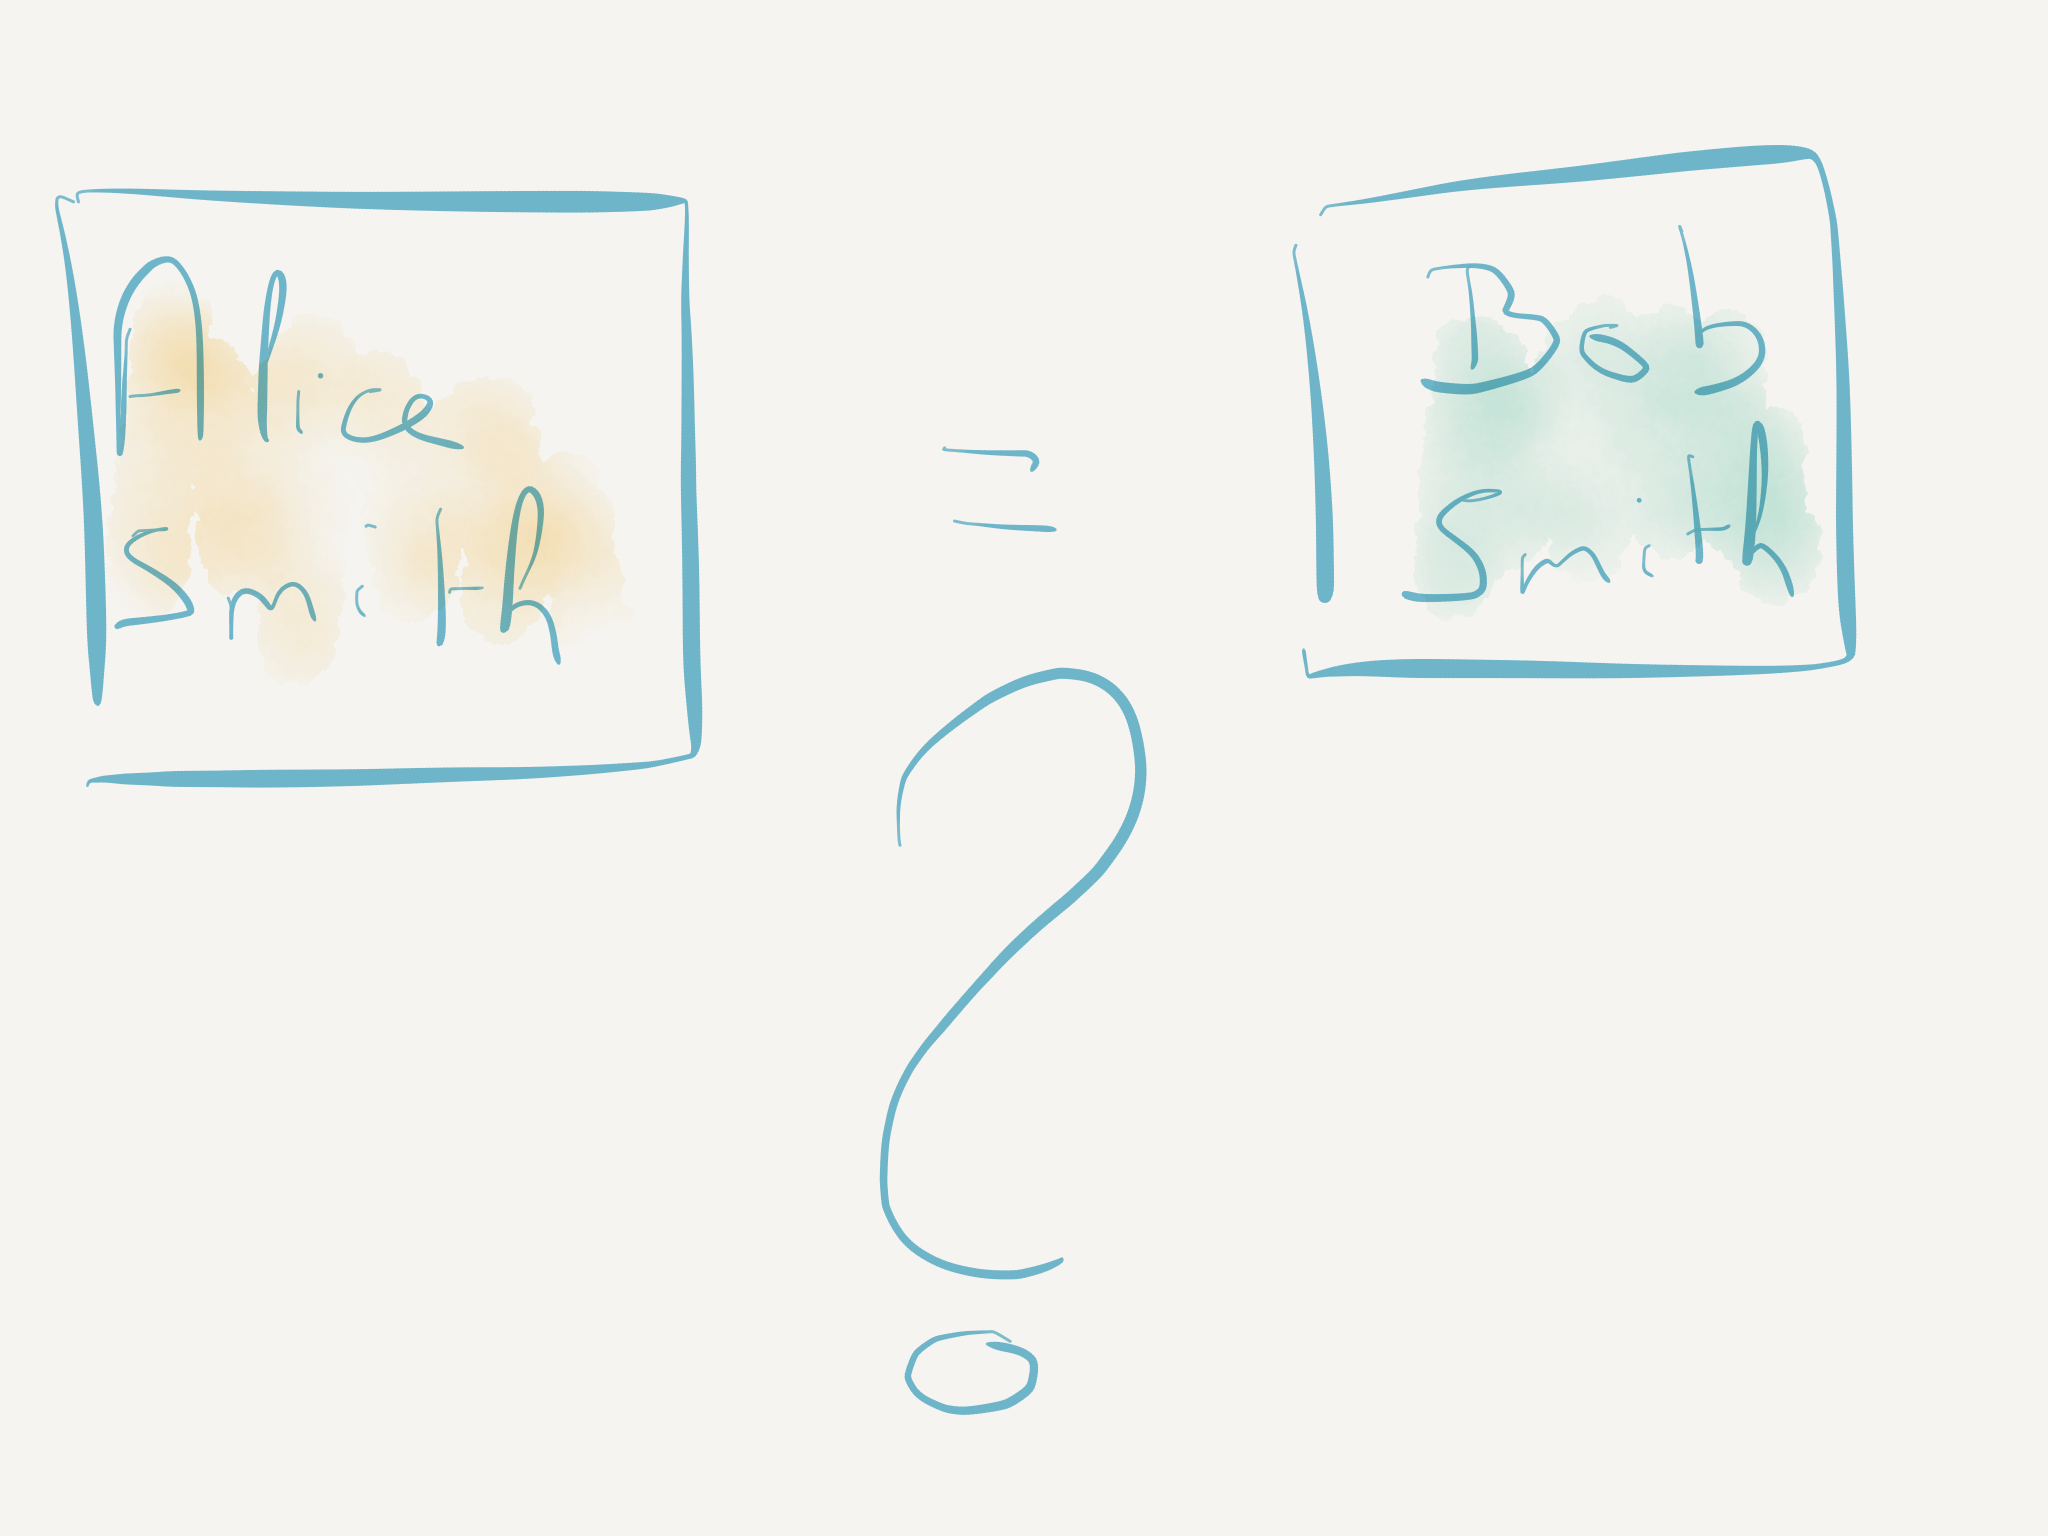 Alice
Smith
=
Bob
Smith
?